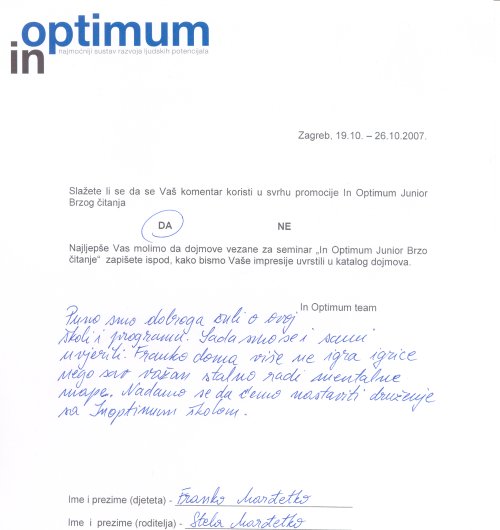 in optimum
najmoćniji sustav razvoja ljudskih potencijala
Zagreb, 19.10. – 26.10.2007.
Slažete li se da se Vaš komentar koristi u svrhu promocije In Optimum Junior
Brzog čitanja
DA NE
Najljepše Vas molimo da dojmove vezane za seminar „In Optimum Junior Brzo
čitanje“ zapišete ispod, kako bismo Vaše impresije uvrstili u katalog dojmova.
In Optimum team
Puno smo dobroga čuli o ovoj
školi i programu. Sada smo se i sami
uvjerili. Franko doma više ne igra igrice
nego sav važan stalno radi mentalne
mape. Nadamo se da ćemo nastaviti druženje
sa Inoptimum školom.
Ime i prezime (djeteta) - Franko Marđetko
Ime i prezime (roditelja) - Stela Marđetko